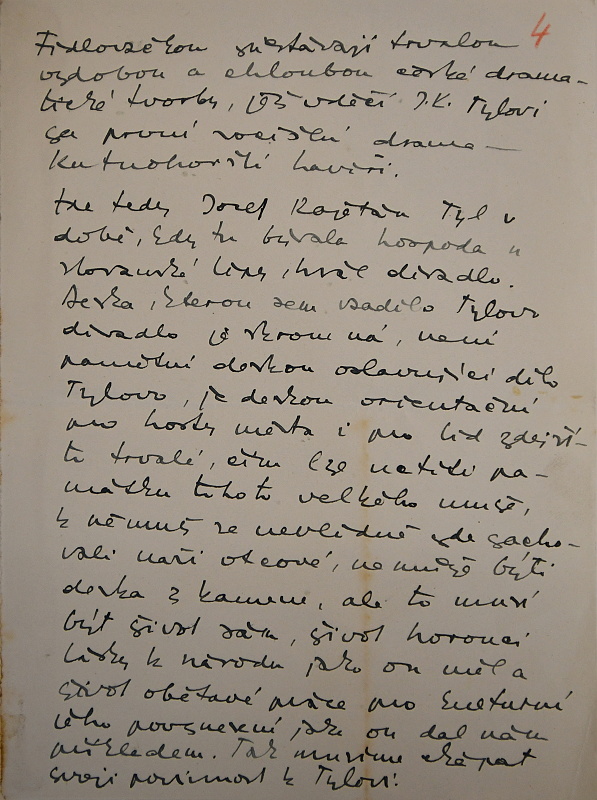 4
Fidlovačkou zůstávají trvalou
ozdobou a chloubou české drama-
tické tvorby, jež vděčí J.K. Tylovi
za první sociální drama -
Kutnohorští havíři.
Zde tedy Josef Kajetán Tyl v
době, kdy tu bývala hospoda u
slovanské lípy, hrál divadlo.
Deska, kterou sem vsadilo Tylovo
divadlo je skromná, není
pamětní deskou oslavující dílo
Tylovo, je deskou orientační
pro hosty města i pro lid zdejší -
to trvalé, čím lze uctíti pa-
mátku tohoto velkého muže,
k němuž se nevlídně zde zacho-
vali naši otcové, nemůže býti
deska z kamene, ale to musí
být život sám, život horoucí
lásky k národu jako on měl a
život obětavé práce pro kulturní
jeho povznesení, jak on dal nám
příkladem. Tak musíme chápat
svoji povinnost k Tylovi.